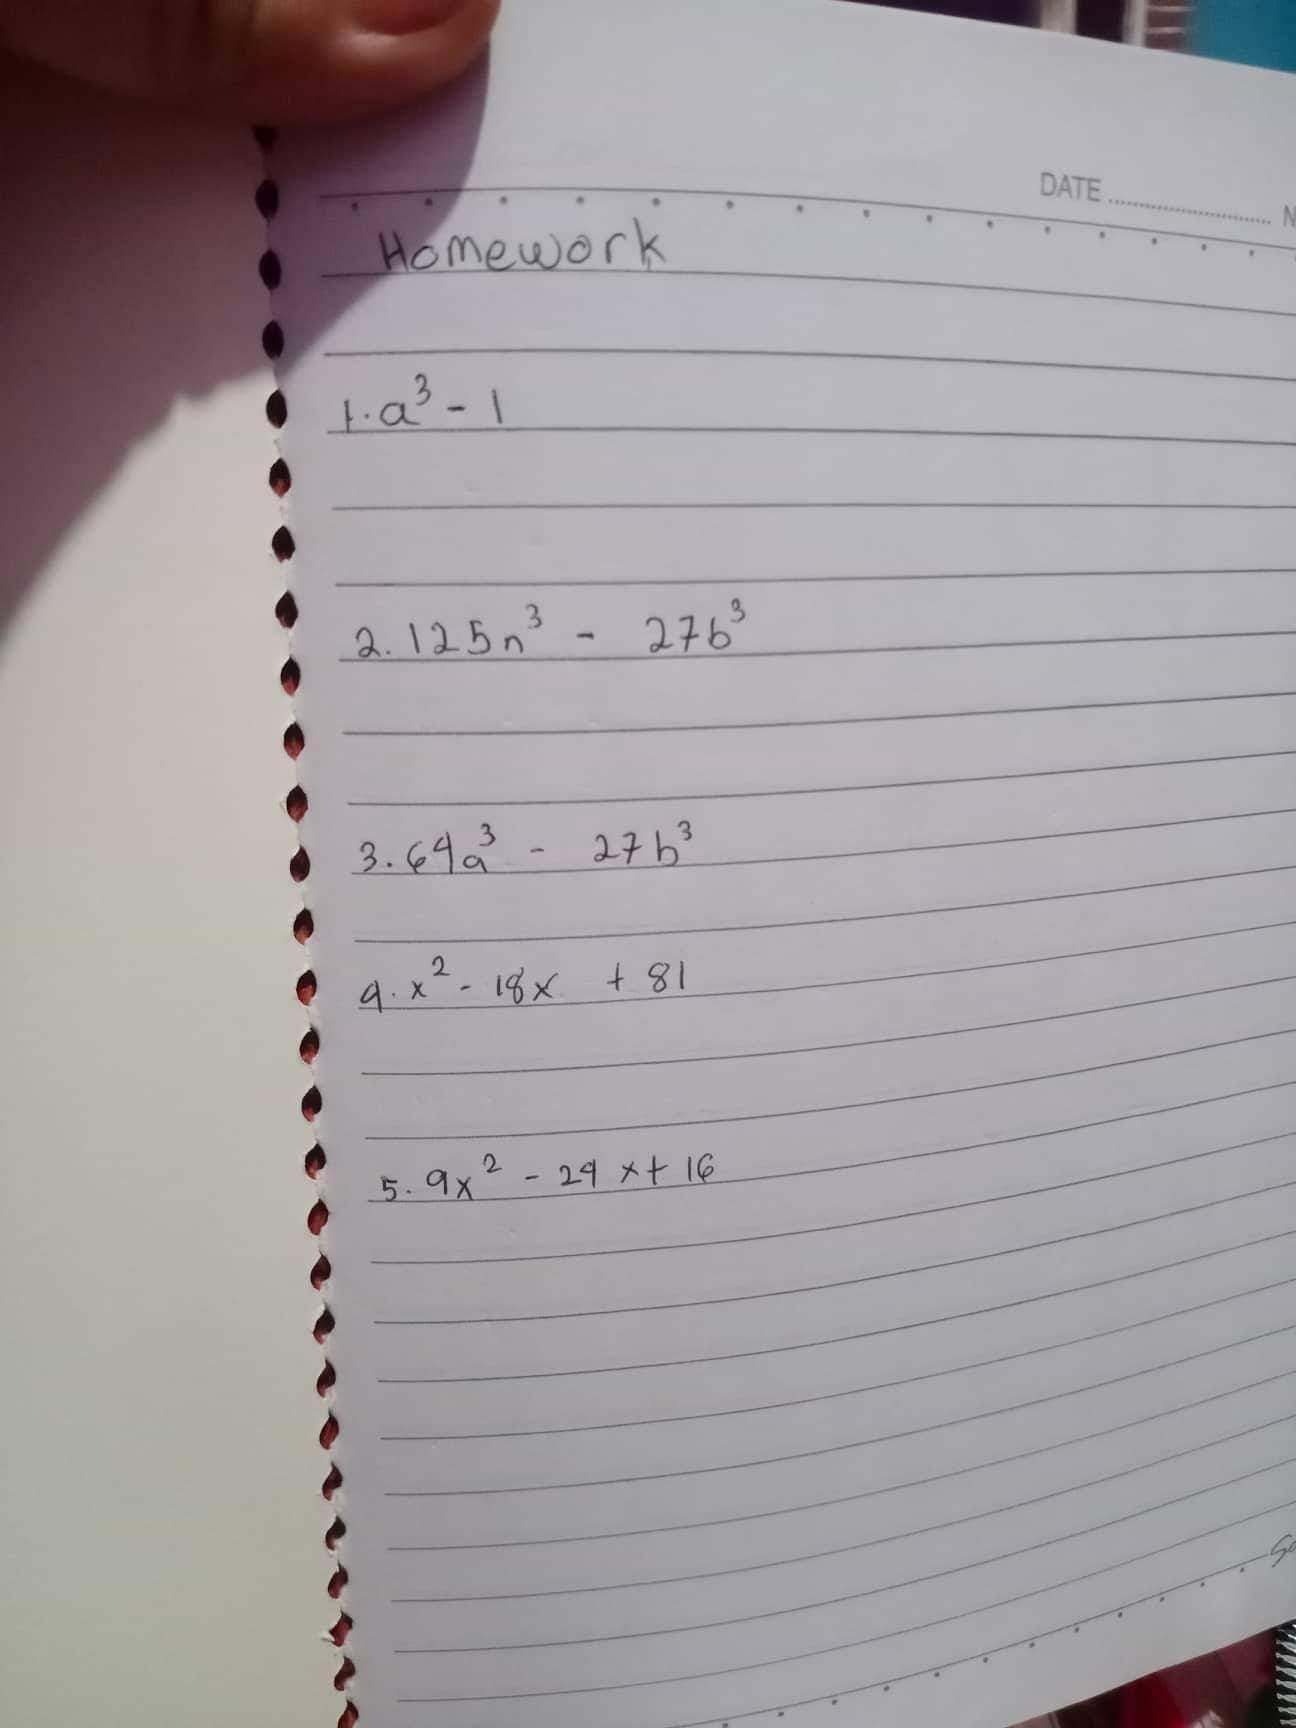 DATE
Homework
1. a³ - 1
2. 125n³ - 27b³
3. 64a³ - 27b³
4. x² - 18x + 81
5. 9x² - 24x + 16